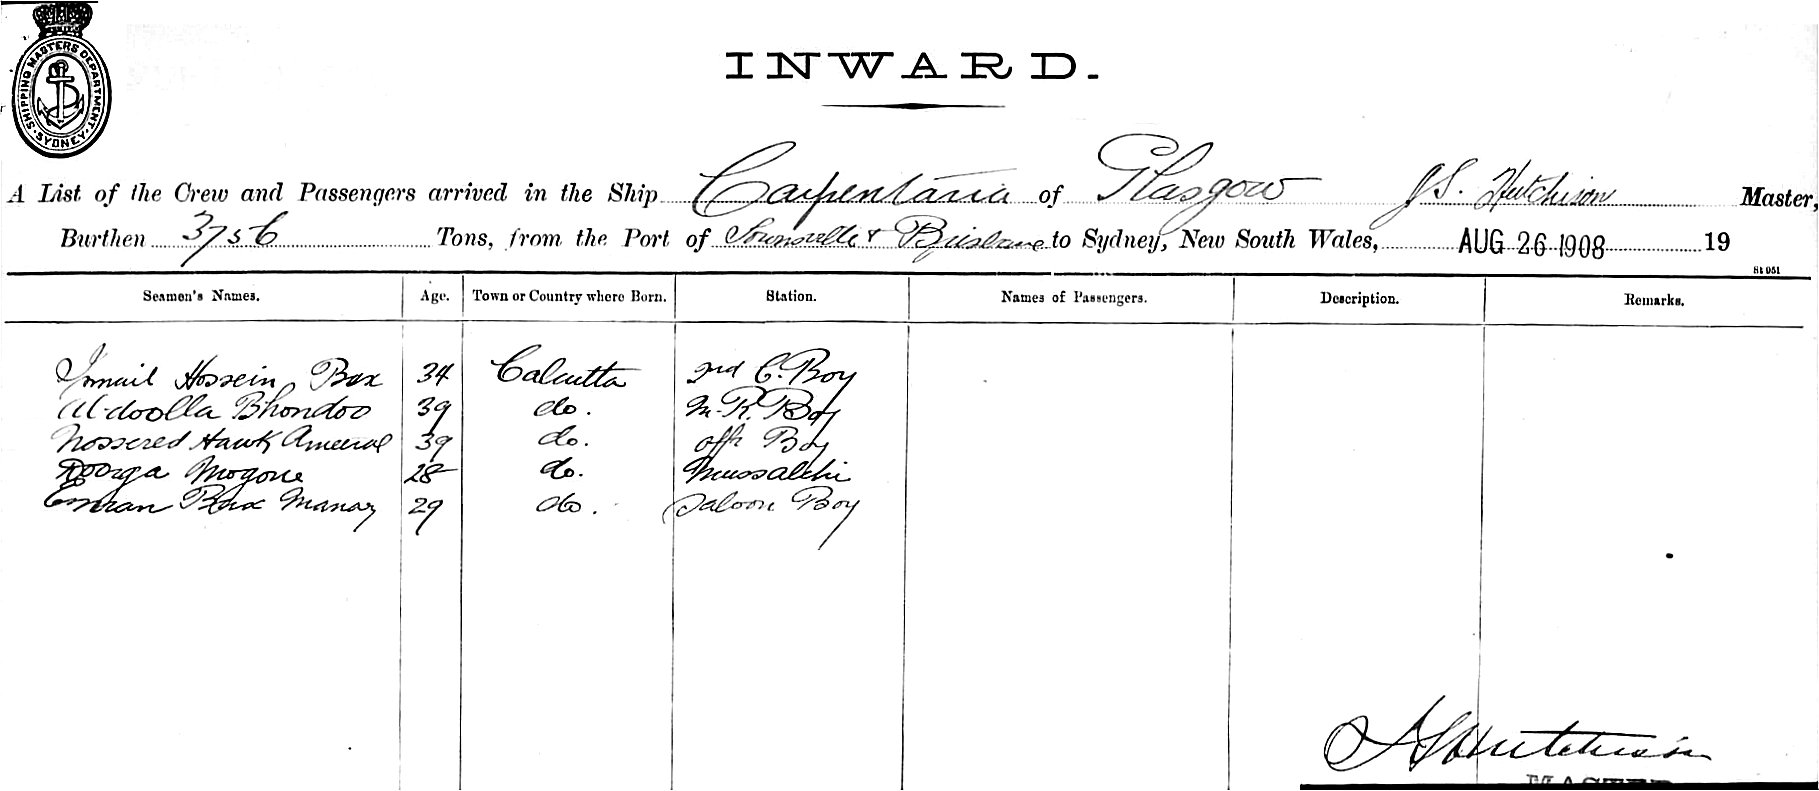 SHIPPING MASTERS DEPARTMENT · SYDNEY ·
INWARD.
A List of the Crew and Passengers arrived in the Ship Carpentaria of Glasgow J S. Hutchison Master,
Burthen 3756 Tons, from the Port of Townsville & Brisbane to Sydney, New South Wales, AUG 26 1908 19
St 051
Seamen's Names. Age. Town or Country where Born. Station. Names of Passengers. Description. Remarks.
Ismail Hossein Bax 34 Calcutta 2nd C. Boy
Abdoolla Bhondoo 39 do. M. R. Boy
Nossered Hawk Ameerul 39 do. offr Boy
Doorga Mogone 28 do. Mussalchi
Esman Bax Manay 29 do. Saloon Boy
J S Hutchison
MASTER